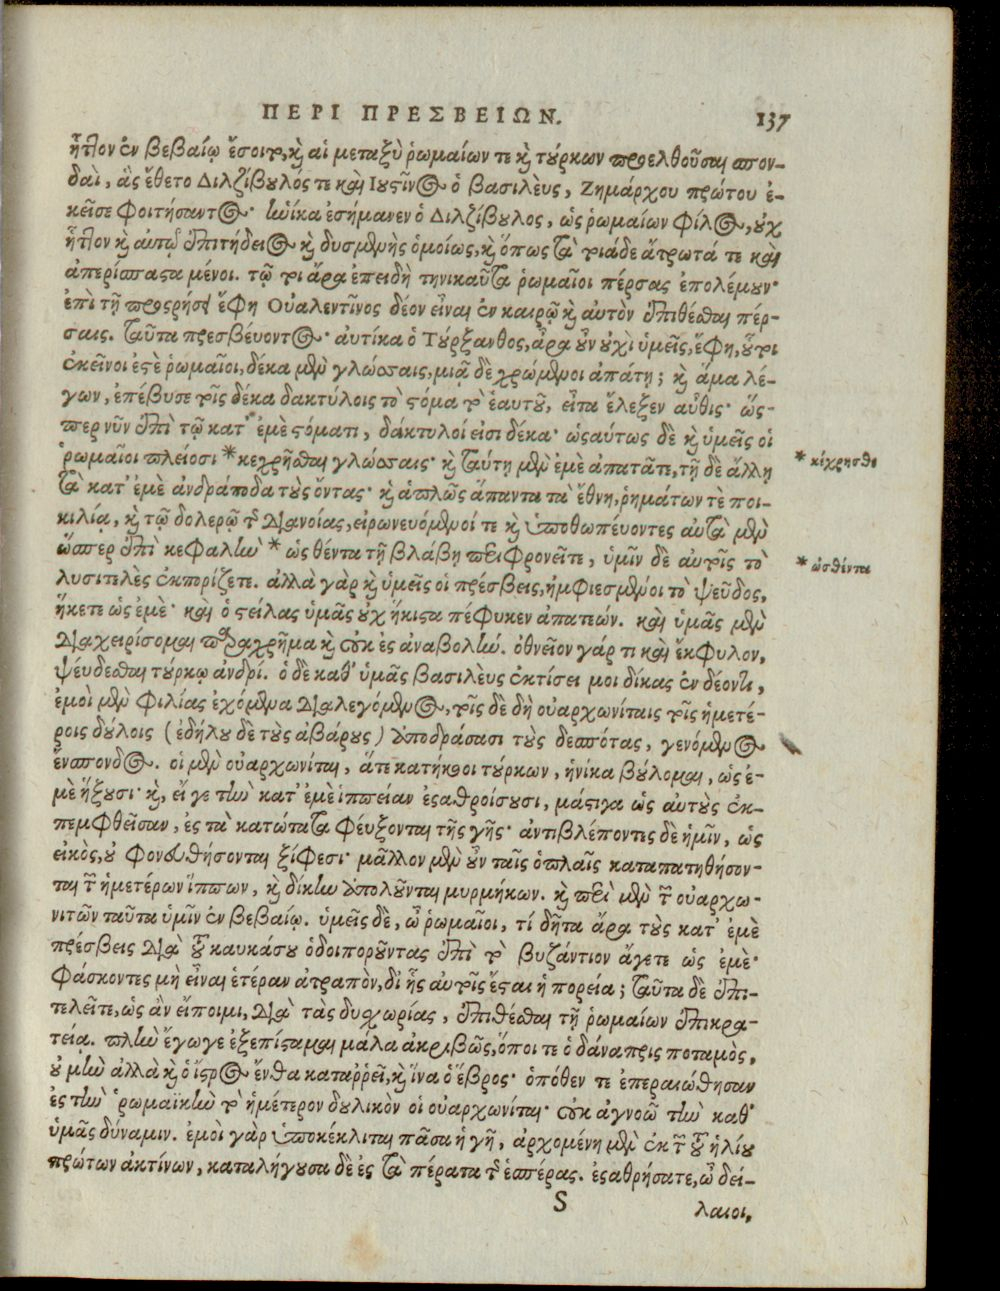 ΠΕΡΙ ΠΡΕΣΒΕΙΩΝ. 137
ἧττον ἐν βεβαίῳ ἔσοιτο, καὶ αἱ μεταξὺ ῥωμαίων τε καὶ τούρκων προελθοῦσαι σπον-
δαὶ, ἃς ἔθετο Διλζίβουλός τε καὶ Ιουστῖνος ὁ βασιλεὺς, Ζημάρχου πρώτου ἐ-
κεῖσε φοιτήσαντος· ἡνίκα ἐσήμανεν ὁ Διλζίβουλος, ὡς ῥωμαίων φίλος, οὐχ
ἧττον καὶ αὐτῷ ἐπιτήδειος καὶ δυσμενὴς ὁμοίως, καὶ ὅπως τὰ τοιάδε ἄτρωτά τε καὶ
ἀπερίσπαστα μένοι. τῷ τοι ἄρα ἐπειδὴ τηνικαῦτα ῥωμαῖοι πέρσας ἐπολέμουν·
ἐπὶ τῇ προςρήσει ἔφη Οὐαλεντῖνος δέον εἶναι ἐν καιρῷ καὶ αὐτὸν ἐπιθέσθαι πέρ-
σαις. ταῦτα πρεσβεύοντος· αὐτίκα ὁ Τούρξανθος, ἆρα οὖν οὐχὶ ὑμεῖς, ἔφη, οὗτοι
ἐκεῖνοι ἐστὲ ῥωμαῖοι, δέκα μὲν γλώσσαις, μιᾷ δὲ χρώμενοι ἀπάτῃ; καὶ ἅμα λέ-
γων, ἐπέβυσε τοῖς δέκα δακτύλοις τὸ στόμα τὸ ἑαυτοῦ, εἶτα ἔλεξεν αὖθις· ὥς-
περ νῦν ἐπὶ τῷ κατ' ἐμὲ στόματι, δάκτυλοί εἰσι δέκα· ὡσαύτως δὲ καὶ ὑμεῖς οἱ
ῥωμαῖοι πλείοσι * κεχρῆσθαι γλώσσαις· καὶ ταύτῃ μὲν ἐμὲ ἀπατᾶτε, τῇ δὲ ἄλλῃ
* κέχρησθε
τὰ κατ' ἐμὲ ἀνδράποδα τοὺς ὄντας· καὶ ἁπλῶς ἅπαντα τὰ ἔθνη, ῥημάτων τὲ ποι-
κιλίᾳ, καὶ τῷ δολερῷ τῆς διανοίας, εἰρωνευόμενοί τε καὶ ὑποθωπεύοντες αὐτὰ μὲν
ὥσπερ ἐπὶ κεφαλὴν * ὡς θέντα τῇ βλάβῃ περιφρονεῖτε, ὑμῖν δὲ αὐτοῖς τὸ
* ὠσθέντα
λυσιτελὲς ἐκπορίζετε. ἀλλὰ γὰρ καὶ ὑμεῖς οἱ πρέσβεις, ἠμφιεσμένοι τὸ ψεῦδος,
ἥκετε ὡς ἐμέ· καὶ ὁ στείλας ὑμᾶς οὐχ ἥκιστα πέφυκεν ἀπατεών. καὶ ὑμᾶς μὲν
διαχειρίσομαι παραχρῆμα καὶ οὐκ ἐς ἀναβολὴν. ὀθνεῖον γάρ τι καὶ ἔκφυλον,
ψεύδεσθαι τούρκῳ ἀνδρί. ὁ δὲ καθ' ὑμᾶς βασιλεὺς ἐκτίσει μοι δίκας ἐν δέοντι,
ἐμοὶ μὲν φιλίας ἐχόμενα διαλεγόμενος, τοῖς δὲ δὴ οὐαρχωνίταις τοῖς ἡμετέ-
ροις δούλοις (ἐδήλου δὲ τοὺς ἀβάρους) ἀποδράσασι τοὺς δεσπότας, γενόμενος
ἔνσπονδος. οἱ μὲν οὐαρχωνίται, ἅτε κατήκοοι τούρκων, ἡνίκα βούλομαι, ὡς ἐ-
μὲ ἥξουσι· καὶ, εἴ γε τὴν κατ' ἐμὲ ἱππείαν ἐσαθροίσουσι, μάστιγα ὡς αὐτοὺς ἐκ-
πεμφθεῖσαν, ἐς τὰ κατώτατα φεύξονται τῆς γῆς· ἀντιβλέποντες δὲ ἡμῖν, ὡς
εἰκὸς, οὐ φονευθήσονται ξίφεσι· μᾶλλον μὲν οὖν ταῖς ὁπλαῖς καταπατηθήσον-
ται τῶν ἡμετέρων ἵππων, καὶ δίκην ἀπολοῦνται μυρμήκων. καὶ περὶ μὲν τῶν οὐαρχω-
νιτῶν ταῦτα ὑμῖν ἐν βεβαίῳ. ὑμεῖς δὲ, ὦ ῥωμαῖοι, τί δῆτα ἄρα τοὺς κατ' ἐμὲ
πρέσβεις διὰ τοῦ καυκάσου ὁδοιποροῦντας ἐπὶ τὸ βυζάντιον ἄγετε ὡς ἐμὲ·
φάσκοντες μὴ εἶναι ἑτέραν ἀτραπὸν, δι' ἧς αὐτοῖς ἔσται ἡ πορεία; ταῦτα δὲ ἐπι-
τελεῖτε, ὡς ἂν εἴποιμι, διὰ τὰς δυσχωρίας, ἐπιθέσθαι τῇ ῥωμαίων ἐπικρα-
τείᾳ. πλὴν ἔγωγε ἐξεπίσταμαι μάλα ἀκριβῶς, ὅποι τε ὁ δάναπρις ποταμὸς,
οὐ μὴν ἀλλὰ καὶ ὁ ἴστρος ἔνθα καταῤῥεῖ, καὶ ἵνα ὁ ἕβρος· ὁπόθεν τε ἐπεραιώθησαν
ἐς τὴν ῥωμαϊκὴν τὸ ἡμέτερον δουλικὸν οἱ οὐαρχωνίται· οὐκ ἀγνοῶ τὴν καθ'
ὑμᾶς δύναμιν. ἐμοὶ γὰρ ὑποκέκλιται πᾶσα ἡ γῆ, ἀρχομένη μὲν ἐκ τῶν τοῦ ἡλίου
πρώτων ἀκτίνων, καταλήγουσα δὲ ἐς τὰ πέρατα τῆς ἑσπέρας. ἐσαθρήσατε, ὦ δεί-
S λαιοι,